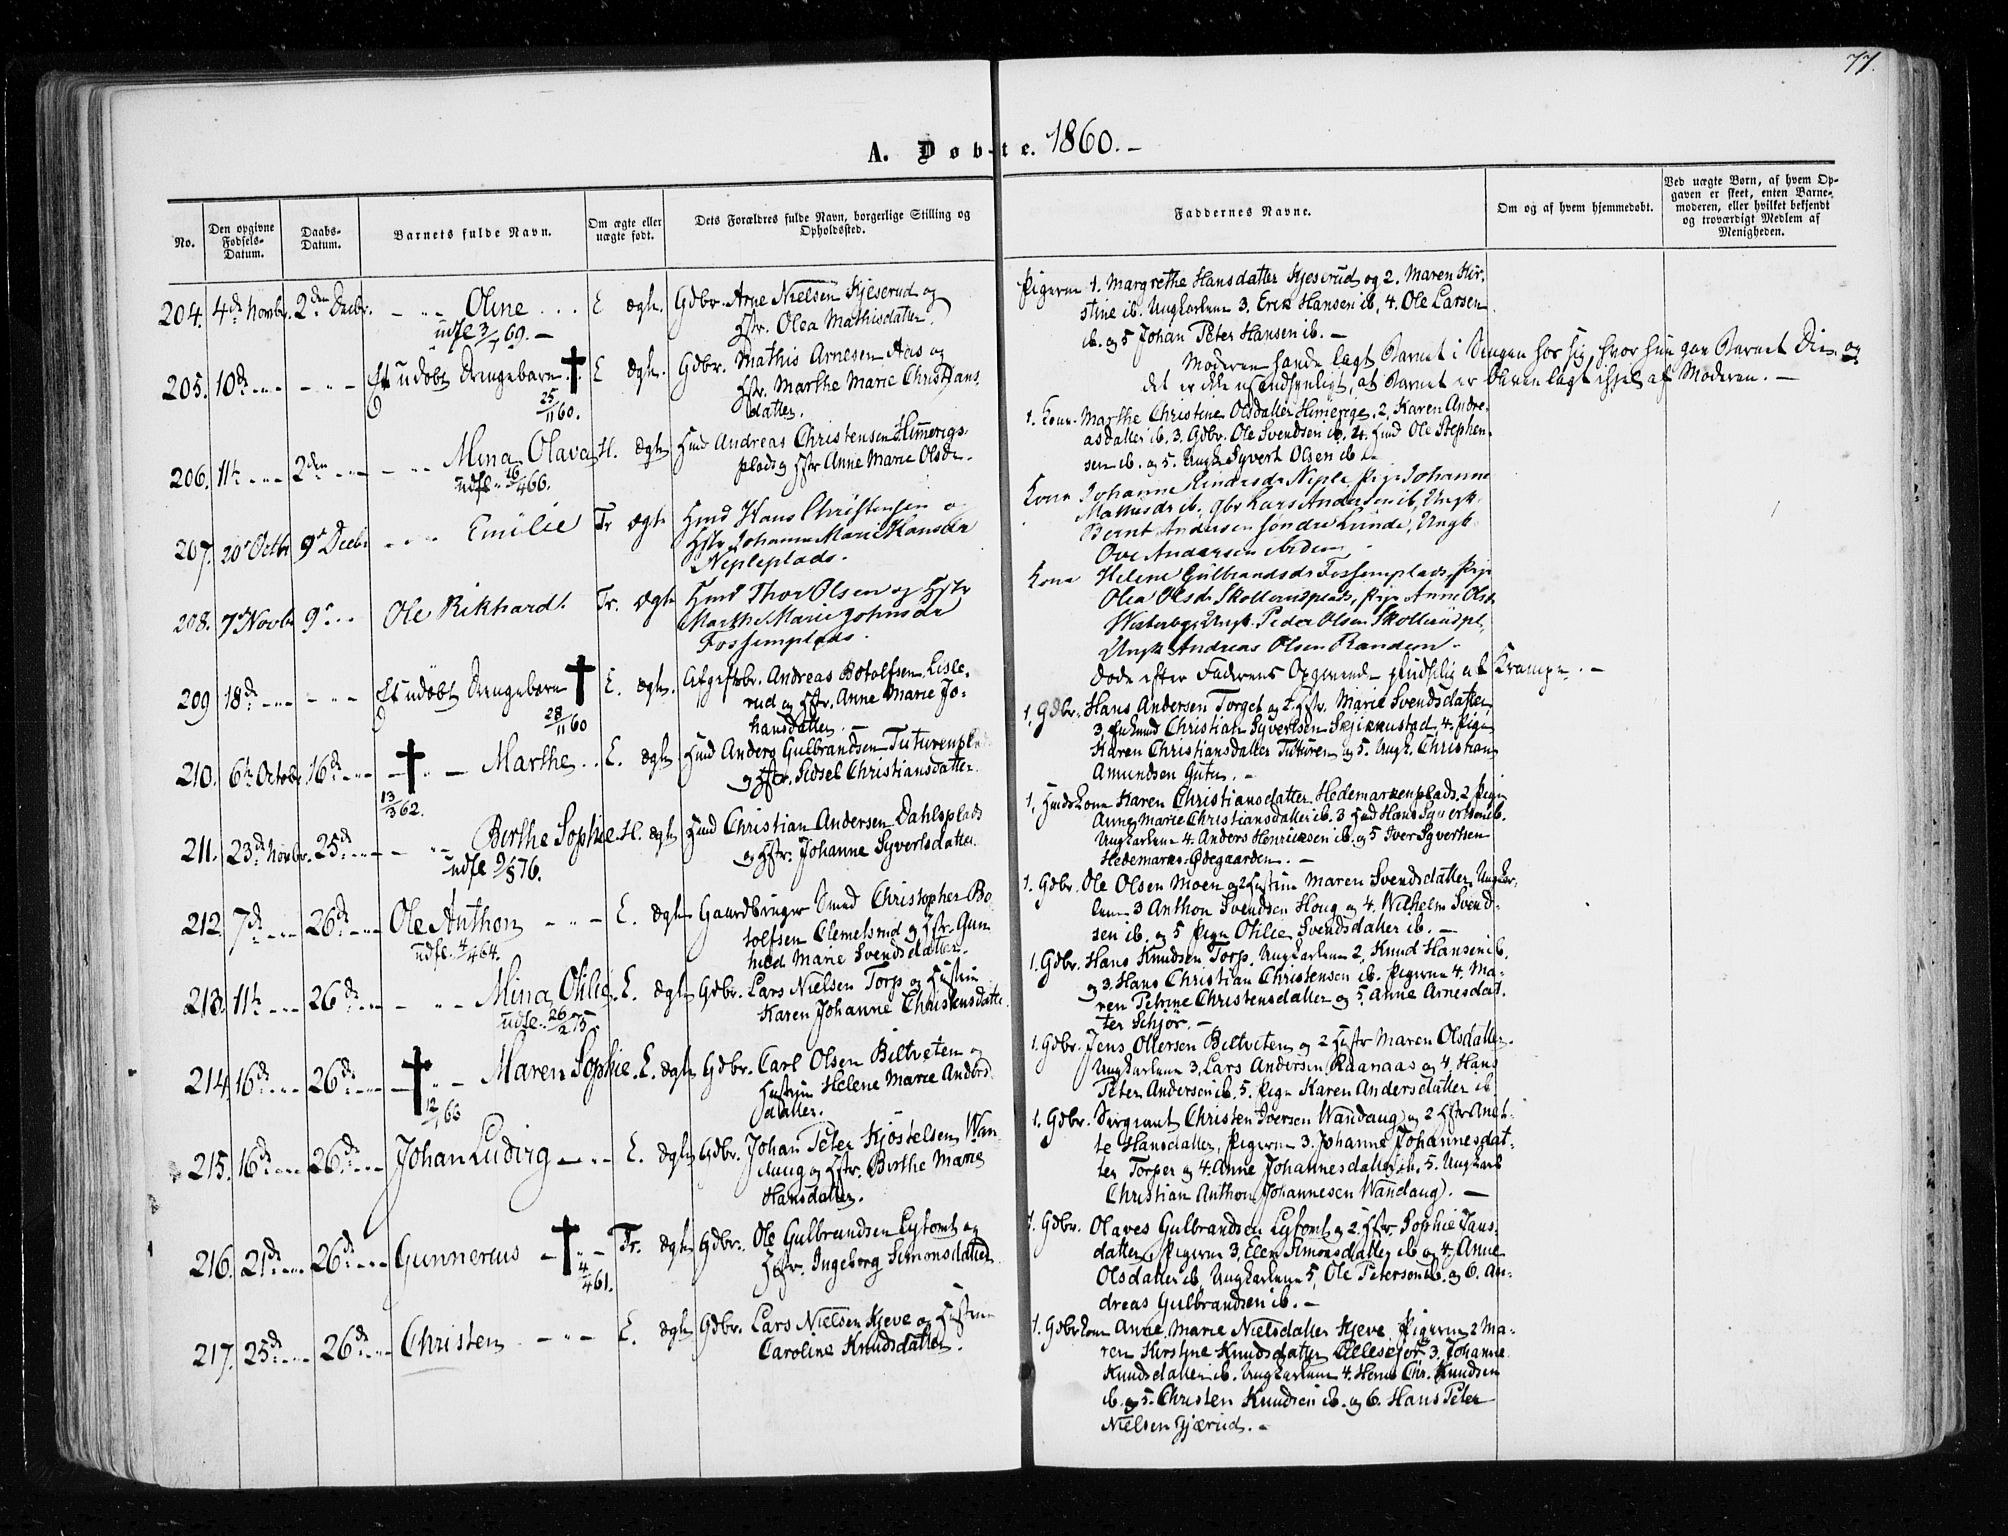 77.
A. Døbte. 1860.-
No.
Den opgivne Fødsels-Datum.
Daabs-Datum.
Barnets fulde Navn.
Om ægte eller uægte født.
Dets Forældres fulde Navn, borgerlige Stilling og Opholdssted.
Faddernes Navne.
Om og af hvem hjemmedøbt.
Ved uægte Børn, af hvem Opgaven er skeet, enten Barnemoderen, eller hvilket bekjendt og troværdigt Medlem af Menigheden.
204. 4de Novbr. 2den Decbr. - „ - Oline . . . E ægte. Gdbr. Arne Nielsen Kjeserud og
udfl 3/ 69. - Hstr. Olea Mathisdatter.
Pigerne 1. Margrethe Hansdatter Kjeserud og 2. Maren Kir-
stine ib. Ungkarlene 3. Erik Hansen ib. 4. Ole Larsen
ib. og 5 Johan Peter Hansen ib. -
205. 10de - „ - - „ - Et udøbt Drengebarn † E ægte. Gdbr. Mathis Arnesen Aas og
25/11 60. Hstr. Marthe Marie Christians-
datter.
Moderen havde lagt Barnet i Sengen hos sig, hvor hun gav Barnet Die og
det er ikke usandsynligt, at Barnet er bleven lagt ihjel af Moderen. -
206. 11te - „ - 2den - „ - - „ - Mina Olava H. ægte Hmd Andreas Christensen Himerigs-
udfl. 16/4 66. plads og Hstr Anne Marie Olsdr.
1. Kone Marthe Christine Olsdatter Himerige, 2. Karen Andre-
asdatter ib. 3. Gdbr. Ole Svendsen ib. 4. Hmd Ole Stephen-
sen ib. og 5. Ungk Syvert Olsen ib.
207. 20de Octbr 9de Decbr - „ - Emilie Tr ægte Hmd Hans Christensen og
Hstr Johanne Marie Hansdr
Nepleplads.
Kone Johanne Neple, Pige Johanne
Mathisdr ib, Gbr Lars Andersen ib, Ungk.
Bernt Andersen søndre Lunde, Ungk.
Ove Andersen ibidem.
208. 7de Novbr 9de - „ - Ole Rikhard. Tr. ægte Hmd Thor Olsen og Hstr
Marthe Marie Johnsdr
Fossemplads.
Kone Helene Gulbrandsdr Fossemplads, Pige
Olea Olsdr Skollerudsplads, Pige Anne Olsdr
Westerbye, Ungk. Peder Olsen Skollerudspl.,
Ungk Andreas Olsen Randem.
209 18de - „ - - „ - Et udøbt Drengebarn † E. ægte. Andreas Botolfsen Lisle-
28/11 60 rud og Hstr. Anne Marie Jo-
hansdatter. -
Døde efter Faderens Opgivende - pludselig af Krampe. -
210. 6te Octobr. 16de - „ - - † - Marthe . . E. ægte Hmd Anders Gulbrandsen Tuturenpl
13/3 62. og Hstr. Sidsel Christiansdatter
1. Gdbr. Hans Andersen Torget og 2. Hstr. Marie Svendsdatter
3. Christian Syvertsen Skjikkustad, 4. Pige
Karen Christiansdatter Tuturen og 5. Ungk. Christian
Amundsen Gutu. -
211. 23de Novbr. 25de - „ - - „ - Berthe Sophie. H. ægte Hmd Christian Andersen Dahlsplads
udfl 9/5 76. og Hstr. Johanne Syvertsdatter.
1. Hmdskone Karen Christiansdatter Hedemarkenplads. 2 Pige
Anne Marie Christiansdatter ib. 3 Hmd Hans Syvertsen ib.
Ungkarlene 4. Anders Henriksen ib. og 5 Iver Syvertsen
Hedemarks-Ødegaarden. -
212. 7de - „ - 26de - „ - Ole Anthon - „ - E. ægte Gaardbruger Smed Christopher Bo-
udfl. 4/4 64. tolfsen Clemetsrud og Hstr. Gun-
hild Marie Svendsdatter.
1. Gdbr. Ole Olsen Moen og 2 Hustru Maren Svendsdatter, Ungkar-
lene 3 Anthon Svendsen Houg og 4. Wilhelm Svend-
sen ib. og 5 Pige Otilie Svendsdatter ib. -
213. 11te - „ - 26de - „ - - „ - Mina Otilie. E. ægte Gdbr. Lars Nielsen Torp og Hustru
udfl. 26/2 75. Karen Johanne Christensdatter.
1. Gdbr. Hans Knudsen Torp. Ungkarlene 2. Knud Hansen ib.
og 3. Hans Christian Christensen ib. Pigerne 4. Ma-
ren Petrine Christensdatter og 5. Anne Arnesdat-
ter Schjør. -
214. 16de - „ - 26de - „ - - † - Maren Sophie. E. ægte Gdbr. Carl Olsen Biltveten og
12/ 66 Hustru Helene Marie Anders-
datter.
1. Gdbr. Jens Ottersen Biltveten og 2 Hustr Maren Olsdatter.
Ungkarlene 3. Lars Andersen Raanaas og 4. Hans
Peter Andersen ib. 5. Pige Karen Andersdatter ib
215. 16de - „ - 26de - „ - Johan Ludvig - „ - E. ægte Gdbr. Johan Peter Kjøstelsen Wan-
daug og Hstr. Berthe Marie
Hansdatter.
1. Gdbr. Sergeant Christen Iversen Wandaug og 2 Hstr Anet-
te Hansdatter, Pigerne 3. Johanne Johannesdat-
ter Torper og 4. Anne Johannesdatter ib. 5. Ungkarl
Christian Anthon Johannesen Wandaug. -
216. 21de - „ - 26de - „ - Gunnerius - † - Tr. ægte Gdbr. Ole Gulbrandsen Lysomt og
4/4 61. Hstr. Ingeborg Simonsdatter
1. Gdbr. Olaves Gulbrandsen Lysomt og 2. Hstr. Sophie Jans-
datter, Pigerne 3. Elen Simonsdatter ib og 4. Anne
Olsdatter ib. Ungkarlene 5. Ole Peterson ib. og 6. An-
dreas Gulbrandsen ib. -
217. 25de - „ - 26de - „ - Christen - „ - E. ægte Gdbr. Lars Nielsen Kjeve og Hustru
Caroline Knudsdatter.
1. Gdbrkone Anne Marie Nielsdatter Kjeve. Pigerne 2 Ma-
ren Kirstine Knudsdatter Lillesjør 3. Johanne
Knudsdatter ib. Ungkarlene 4. Hans Chr. Knudsen
ib. og 5. Christen Knudsen ib. og 6. Hans Peter
Nielsen Gjærud. -